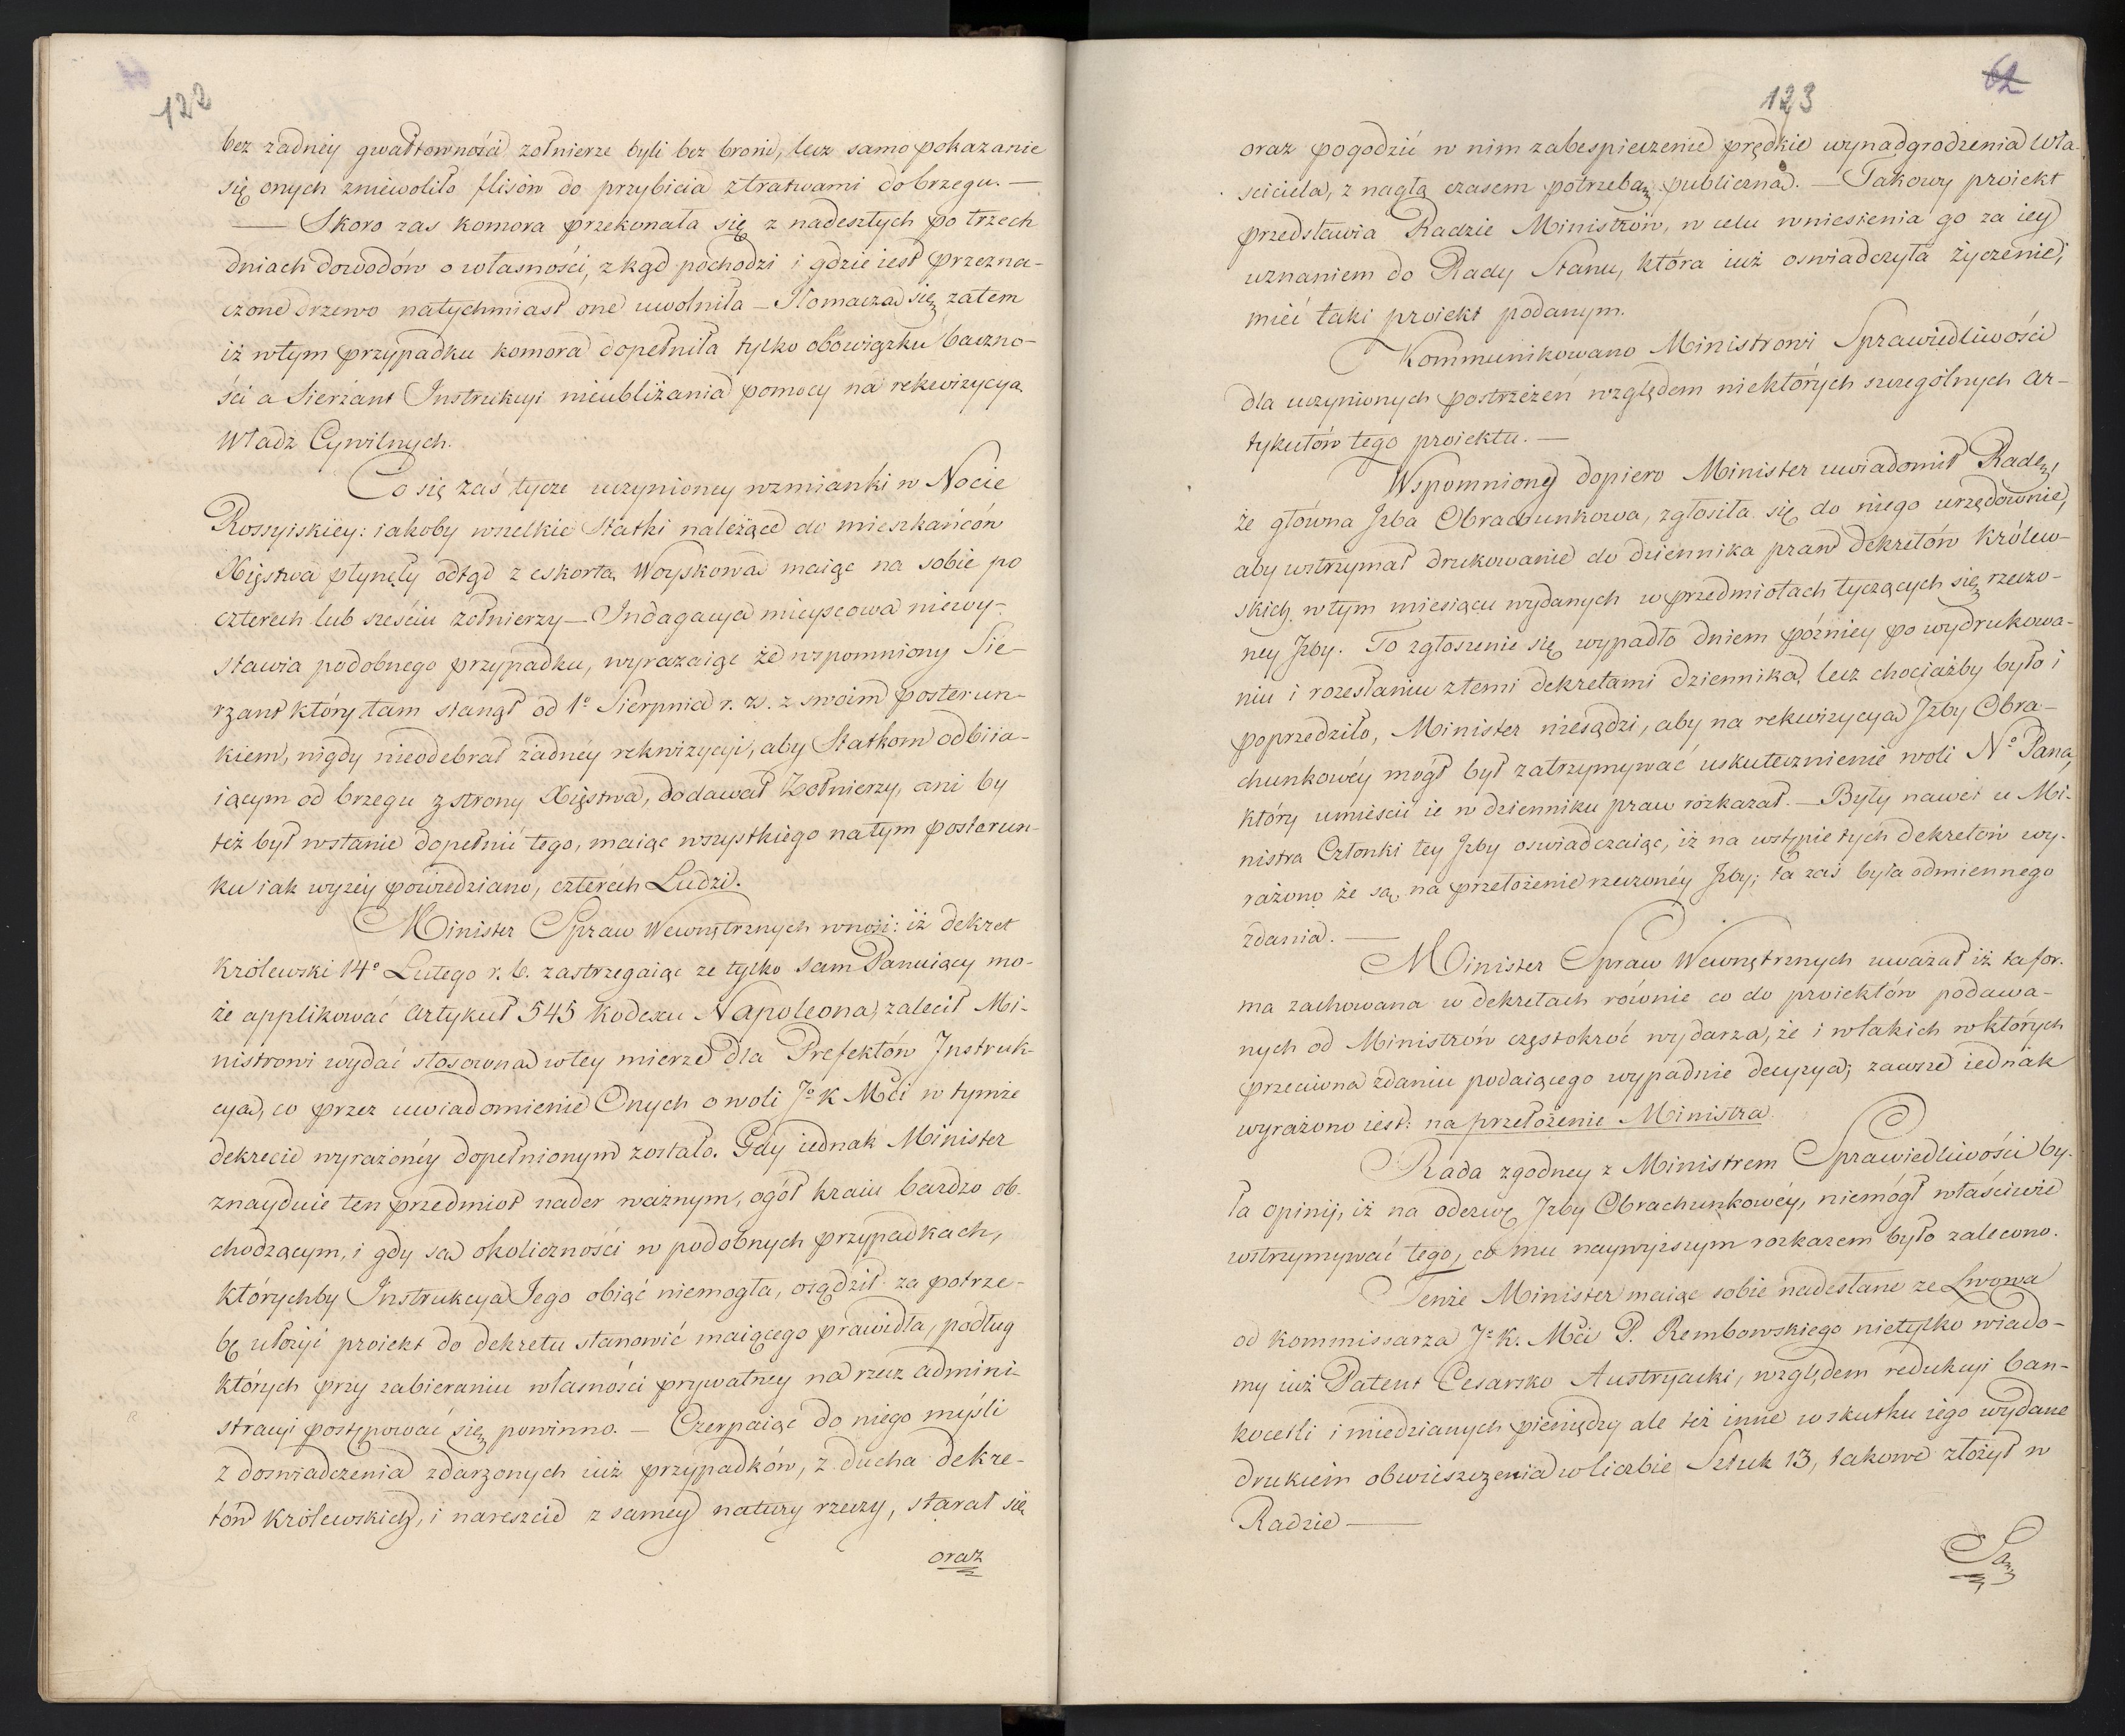 122
bez żadnéy gwałtowności żołnierze byli bez broni, lecz samo pokazanie
się onych zniewoliło flisów do przybicia z tratwami do brzegu. —
— Skoro zas komora przekonała się z nadeszłych po trzech
dniach dowodów o własności, zkąd pochodzi i gdzie iest przezna-
czone drzewo natychmiast one uwolniła — Tłomacza się zatem
iż w tym przypadku komora dopełniła tylko obowiązku baczno-
ści a Sierżant Instrukcyi nieubliżania pomocy na rekwizycya
Władz Cywilnych.
Co się zaś tycze uczynioney wzmianki w Nocie
Rossyiskiéy: iakoby wszelkie Statki należące do mieszkańców
Xięstwa płynęły odtąd z eskortą Woyskową maiąc na sobie po
czterech lub sześciu żołnierzy — Indagacya mieyscowa niewy-
stawia podobnego przypadku, wyrażaiąc że wspomniony Sie-
rżant który tam stanął od 1º Sierpnia r. z. z swoim posterun-
kiem, nigdy nieodebrał żadnéy rekwizycyi, aby Statkom odbiia-
iącym od brzegu z strony Xięstwa, dodawał Żołnierzy, ani by
też był wstanie dopełnić tego, maiąc wszystkiego na tym posterun-
ku iak wyżéy powiedziano, czterech Ludzi.
Minister Spraw Wewnętrznych wnosi: iż dekret
Królewski 14º Lutego r. b. zastrzegaiąc ze tylko sam Panuiący mo-
że applikować Artykuł 545 Kodexu Napoleona, zalecił Mi-
nistrowi wydać stosowną wtey mierze dla Prefektów Instruk-
cyą, co przez uwiadomienie Onych o woli Jº K Mći w tymże
dekrecie wyrażonéy dopełnionym zostało. Gdy iednak Minister
znayduie ten przedmiot nader ważnym, ogół kraiu bardzo ob-
chodzącym, i gdy są okoliczności w podobnych przypadkach,
którychby Instrukcya Jego obiąć niemogła, osądził za potrze-
bę ułożyć proiekt do dekretu stanowić maiącego prawidła, podług
których przy zabieraniu własności prywatney na rzecz admini-
stracyi postępować się powinno. — Czerpaiąc do niego myśli
z doświadczenia zdarzonych iuż przypadków, z ducha dekre-
tów Królewskich, i nareszcie z saméy natury rzeczy, starał się
oraz
62
123
oraz pogodzić w nim zabespieczenie prędkie wynadgrodzenia Wła-
sciciela, z nagłą czasem potrzebą publiczną. — Takowy proiekt
przedstawia Radzie Ministrów, w celu wniesienia go za iey
uznaniem do Rady Stanu, która iuż oswiadczyła życzenie,
mieć taki proiekt podanym.
Kommunikowano Ministrowi Sprawiedliwości
dla uczynionych postrzeżeń względem niektórych szczególnych Ar-
tykułów tego proiektu. —
Wspomniony dopiero Minister uwiadomił Radę,
że główna Jzba Obrachunkowa, zgłosiła się do niego urzędownie,
aby wstrzymał drukowanie do dziennika praw dekretów Królew-
skich w tym miesiącu wydanych w przedmiotach tyczących się rzeczo-
ney Jzby. To zgłoszenie się wypadło dniem późniey po wydrukowa-
niu i rozesłaniu z temi dekretami dziennika, lecz chociażby było i
poprzedziło, Minister niesądzi, aby na rekwizycyą Jzby Obra-
chunkowéy mógł był zatrzymywać uskutecznienie woli Nº Pana,
który umieścić ie w dzienniku praw rozkazał. — Były nawet u Mi-
nistra Członki tey Jzby oswiadczaiąc, iż na wstępie tych dekretów wy-
rażono że są na przełożenie rzeczonéy Jzby; ta zaś była odmiennego
zdania. —
Minister Spraw Wewnętrznych uważał iż ta for-
ma zachowana w dekretach równie co do proiektów podawa-
nych od Ministrów częstokroć wydarza, że i w takich w których
przeciwna zdaniu podaiącego wypadnie decyzya; zawsze iednak
wyrażono iest: na przełożenie Ministra.
Rada zgodney z Ministrem Sprawiedliwości by-
ła opinij, iż na odezwę Jzby Obrachunkowéy, niemógł właściwie
wstrzymywać tego, co mu naywyższym rozkazem było zalecono.
Tenże Minister maiąc sobie nadesłane ze Lwowa
od Kommissarza Jº K. Mći P. Rembowskiego nietylko wiado-
my iuż Patent Cesarsko Austryacki, względem redukcyi ban-
kocetli i miedzianych pieniędzy ale też inne w skutku iego wydane
drukiem obwieszczenia w liczbie Sztuk 13, takowe złożył w
Radzie —